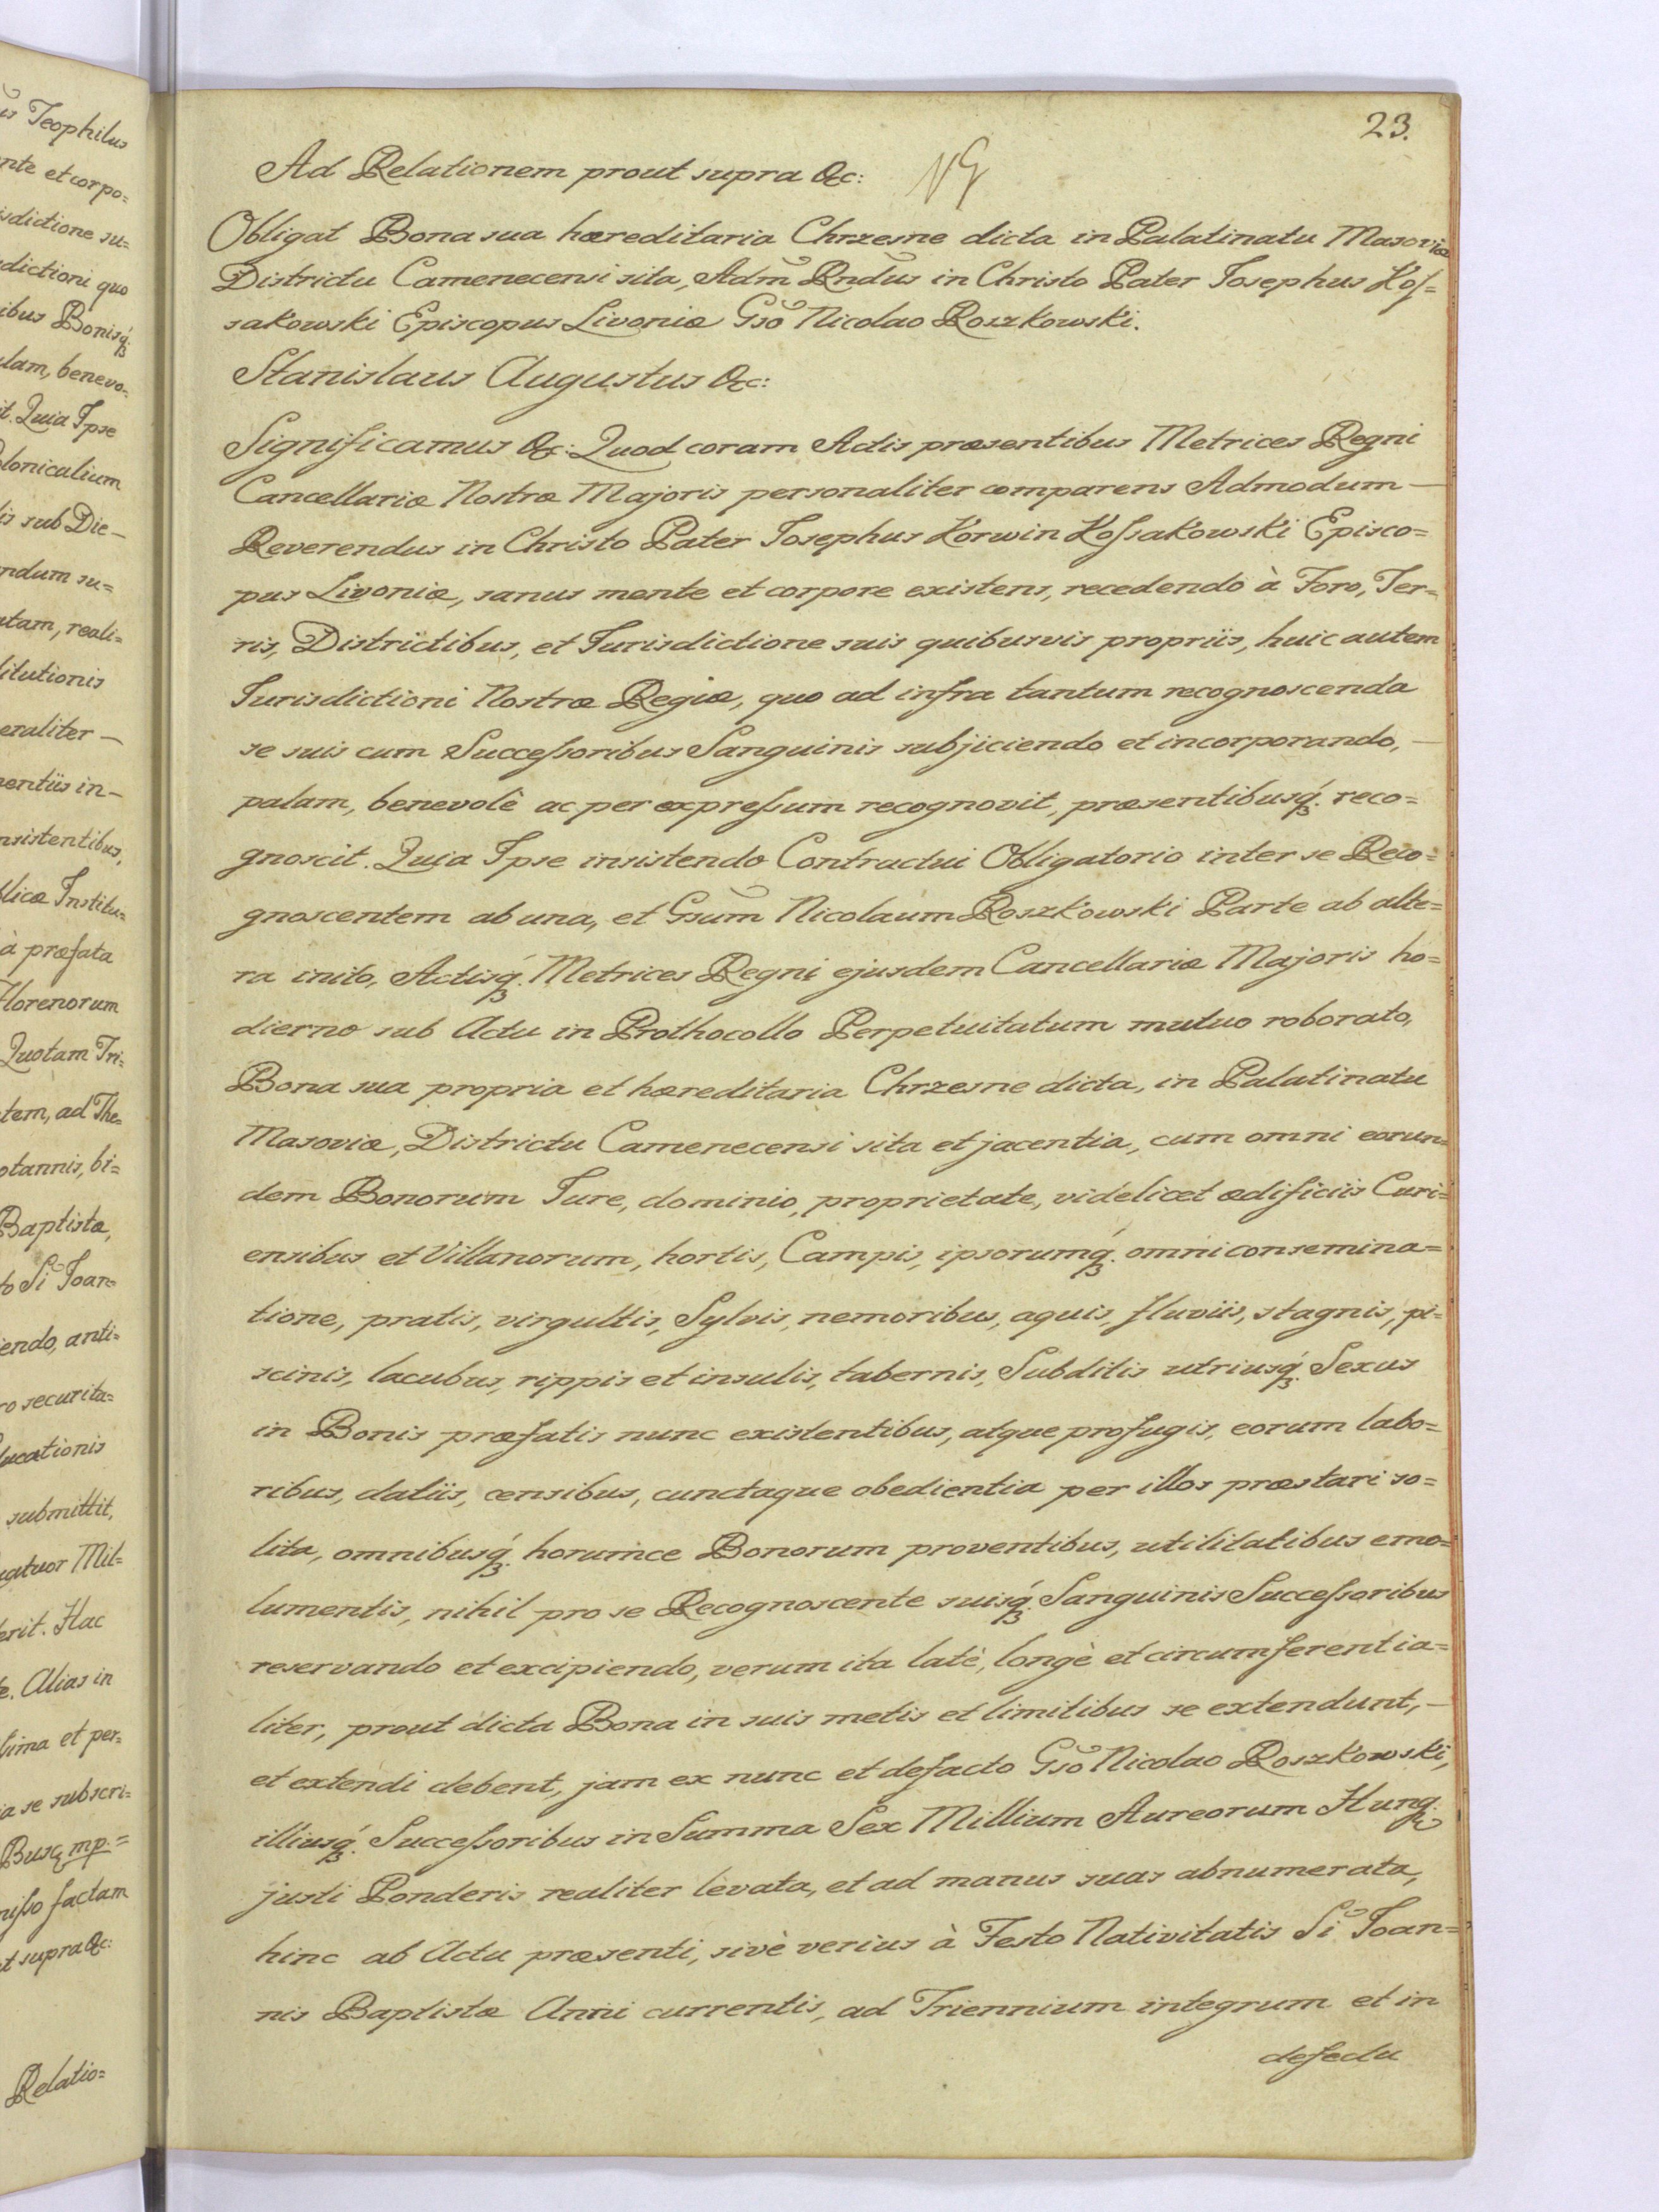 23.
Ad Relationem prout supra &c:
Obligat Bona sua hæreditaria Chrzesne dicta in Palatinatu Masoviæ
Districtu Camenecensi sita, Adm̃ Rndũs in Christo Pater Josephus Kos=
sakowski Episcopus Livoniæ Gsõ Nicolao Roszkowski.
Stanislaus Augustus &c:
Significamus &c: Quod coram Actis præsentibus Metrices Regni
Cancellariæ Nostræ Majoris personaliter comparens Admodum —
Reverendus in Christo Pater Josephus Korwin Kossakowski Episco=
pus Livoniæ, sanus mente et corpore existens, recedendo à Foro, Ter=
ris, Districtibus, et Jurisdictione suis quibusvis propriis, huic autem
Jurisdictioni Nostræ Regiæ, quo ad infra tantum recognoscenda
se suis cum Successoribus Sanguinis subjiciendo et incorporando, —
palam, benevolè ac per expressum recognovit, præsentibusq́. reco=
gnoscit. Quia Ipse insistendo Contractui Obligatorio inter se Reco=
gnoscentem ab una, et Gsum̃ Nicolaum Roszkowski Parte ab alte=
ra inito, Actisq́. Metrices Regni ejusdem Cancellariæ Majoris ho=
dierno sub Actu in Prothocollo Perpetuitatum mutuo roborato,
Bona sua propria et hæreditaria Chrzesne dicta, in Palatinatu
Masoviæ, Districtu Camenecensi sita et jacentia, cum omni eorun=
dem Bonorum Jure, dominio, proprietate, videlicet ædificiis Curi=
ensibus et Villanorum, hortis, Campis, ipsorumq́. omni consemina=
tione, pratis, virgultis, Sylvis, nemoribus, aquis, fluviis, stagnis, pi=
scinis, lacubus, rippis et insulis, tabernis, Subditis utriusq́. Sexus
in Bonis præfatis nunc existentibus, atque profugis, eorum labo=
ribus, datiis, censibus, cunctaque obedientia per illos præstari so=
lita, omnibusq́. horumce Bonorum proventibus, utilitatibus emo=
lumentis, nihil pro se Recognoscente suisq́. Sanguinis Successoribus
reservando et excipiendo, verum ita latè, longè et circumferentia=
liter, prout dicta Bona in suis metis et limitibus se extendunt, —
et extendi debent, jam ex nunc et defacto Gsõ Nicolao Roszkowski,
illiusq́. Successoribus in Summa Sex Millium Aureorum Hung.
justi Ponderis realiter levata, et ad manus suas abnumerata,
hinc ab Actu præsenti, sivè verius à Festo Nativitatis Sĩ Joan=
nis Baptistæ Anni currentis, ad Triennium integrum et in
defectu